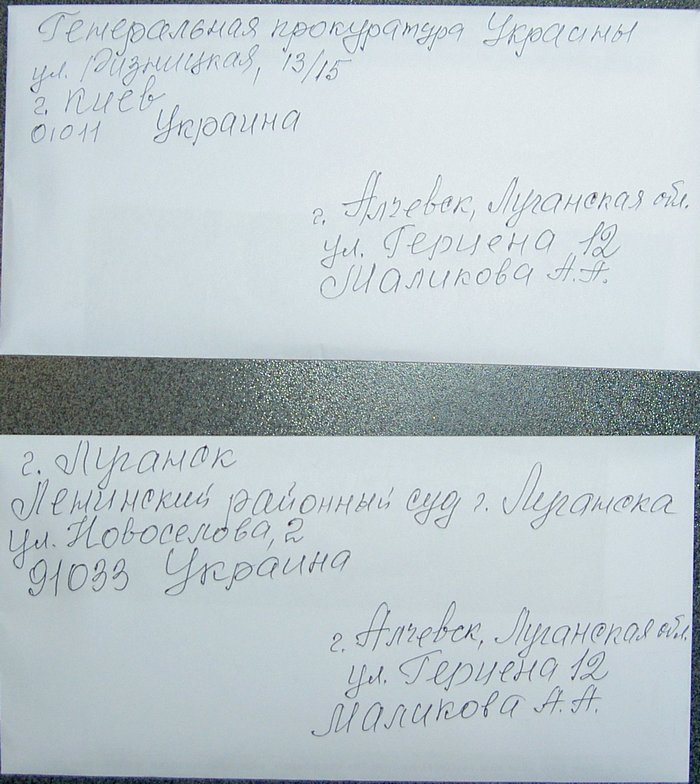 Генеральная прокуратура Украины
ул. Ризницкая, 13/15
г. Киев
01011 Украина
г. Алчевск, Луганская обл.
ул. Герцена 12
Маликова А.А.
г. Луганск
Ленинский районный суд г. Луганска
ул. Новоселова, 2
91033 Украина
г. Алчевск, Луганская обл.
ул. Герцена 12
Маликова А.А.